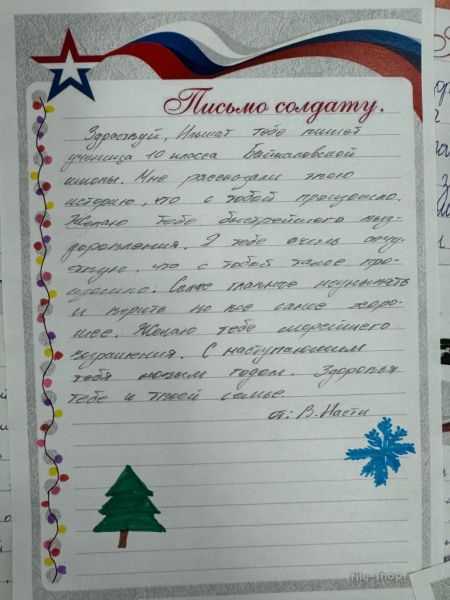 Письмо солдату.
Здраствуй, Ильшат тебе пишет
ученица 10 класса Баймаловской
школы. Мне рассказали твою
историю, что с тобой произошло.
Желаю тебе быстрейшего выз-
доровления. Я тебе очень сочу-
ствую, что с тобой такое про-
изошло. Самое главное неунывать
и верить во все самое хоро-
шее. Желаю тебе скорейшего
возращения. С наступающим
тебя новым годом. Здоровья
тебе и твоей семье.
от: В. Насти